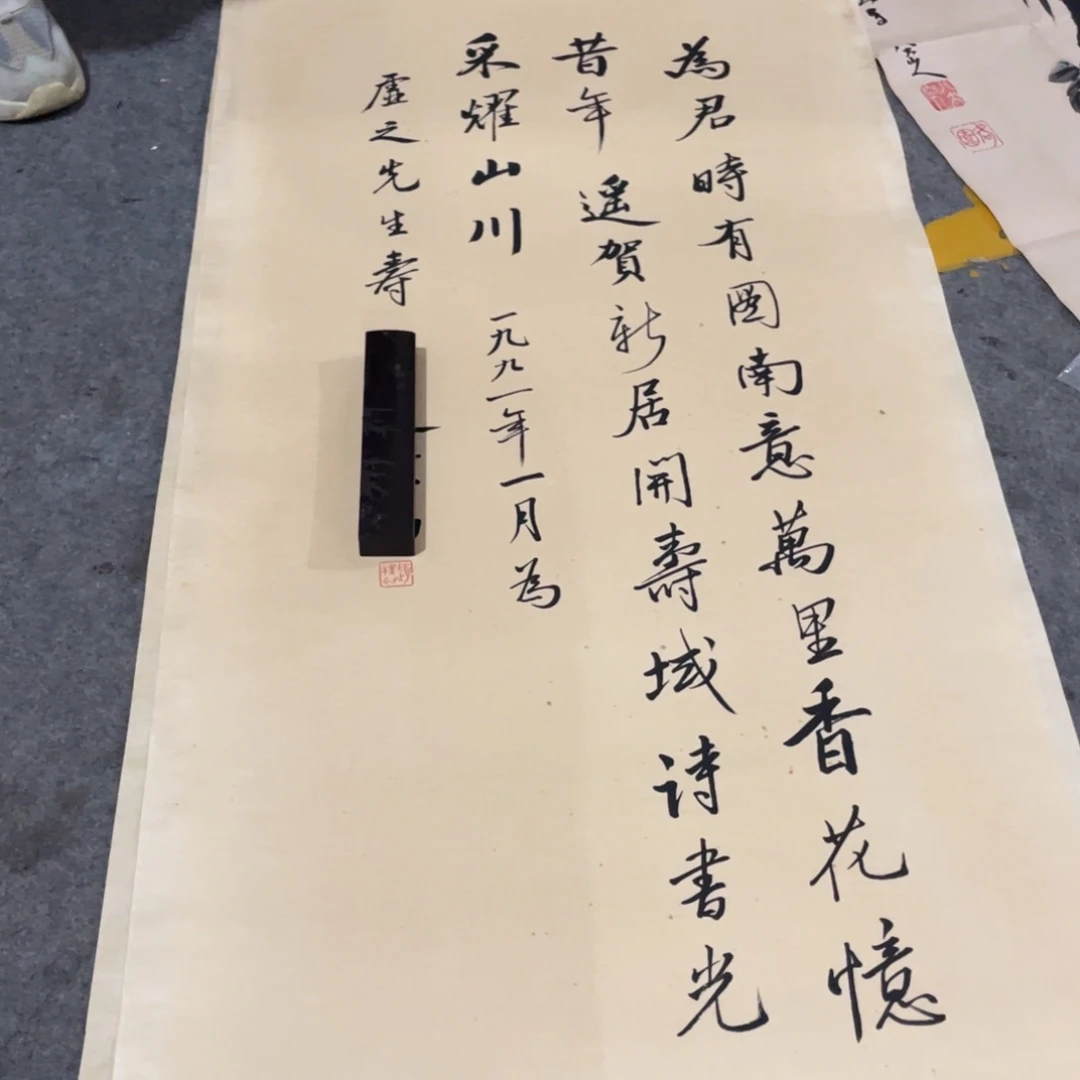 為君時有圖南意萬里香花憶
昔年遥賀新居開壽域詩書光
采耀山川 一九九一年一月為
虛之先生壽